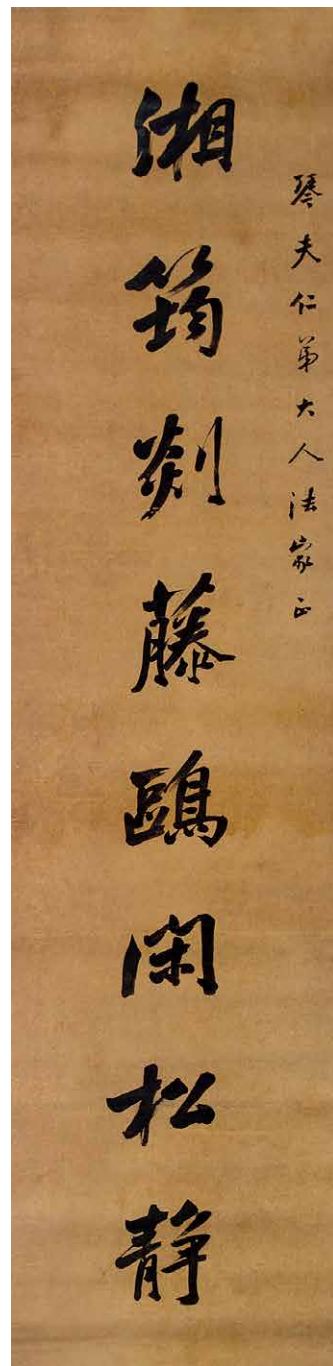 琴夫仁弟大人法家正
湘筠剡藤鷗閑松静